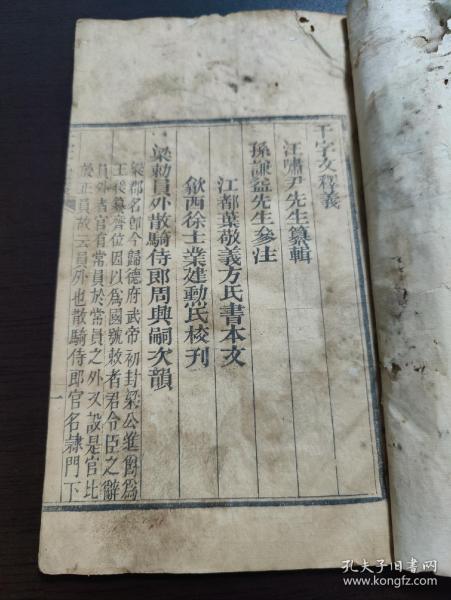 千字文釋義
汪嘯尹先生纂輯
孫謙益先生參注
江都葉敬義方氏書本文
歙西徐士業建勳氏校刊
梁勅員外散騎侍郎周興嗣次韻
梁郡名即今歸德府武帝初封梁公進爵為
王後篡齊位因以為國號敕者君令臣之辭
員外者官有常員於常員之外又設是官比
於正員故云員外也散騎侍郎官名隸門下
一
孔夫子旧书网
www.kongfz.com